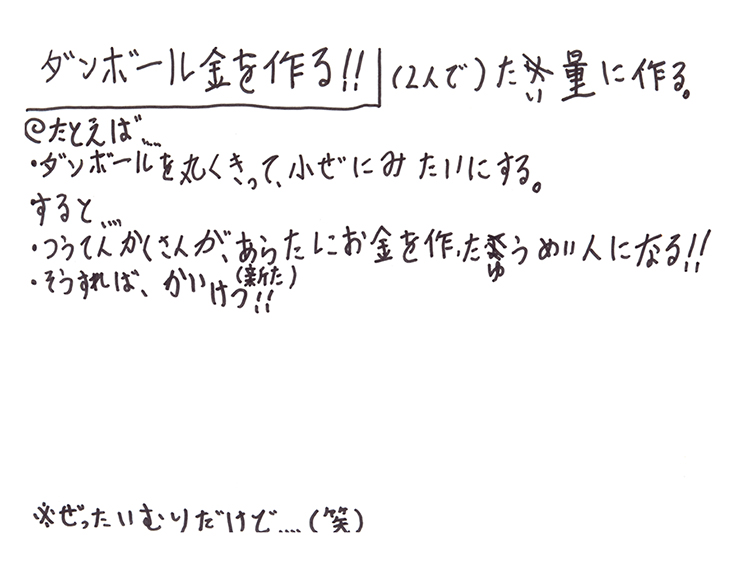 ダンボール金を作る!! (2人で)たい量に作る。
@たとえば……
・ダンボールを丸くきって、小ぜにみたいにする。
すると……
・つうてんかくさんが、あらたにお金を作ったゆうめい人になる!!
(新た)
・そうすれば、かいけつ!!
※ぜったいむりだけど……(笑)